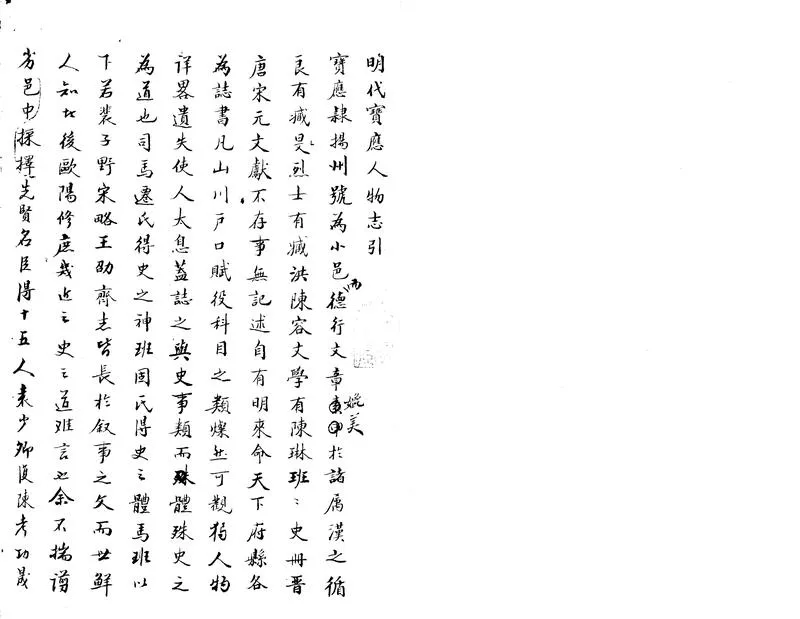 明代寶應人物志引
寶應隸揚州號為小邑而德行文章媲美於諸属漢之循
良有臧旻烈士有臧洪陳容文學有陳琳班〻史冊晋
唐宋元文獻不存事無記述自有明來命天下府縣各
為誌書凡山川戸口賦役科目之類燦然可觀獨人物
详畧遺失使人太息蓋誌之與史事類而體殊史之
為道也司馬遷氏得史之神班固氏得史之體馬班以
下若裴子野宋略王劭齊志皆長於叙事之文而世鮮
人知此後歐陽修庶幾近之史之道难言也余不揣謭
劣邑中採擇先賢名臣得十五人袁少卿復陳考功晟